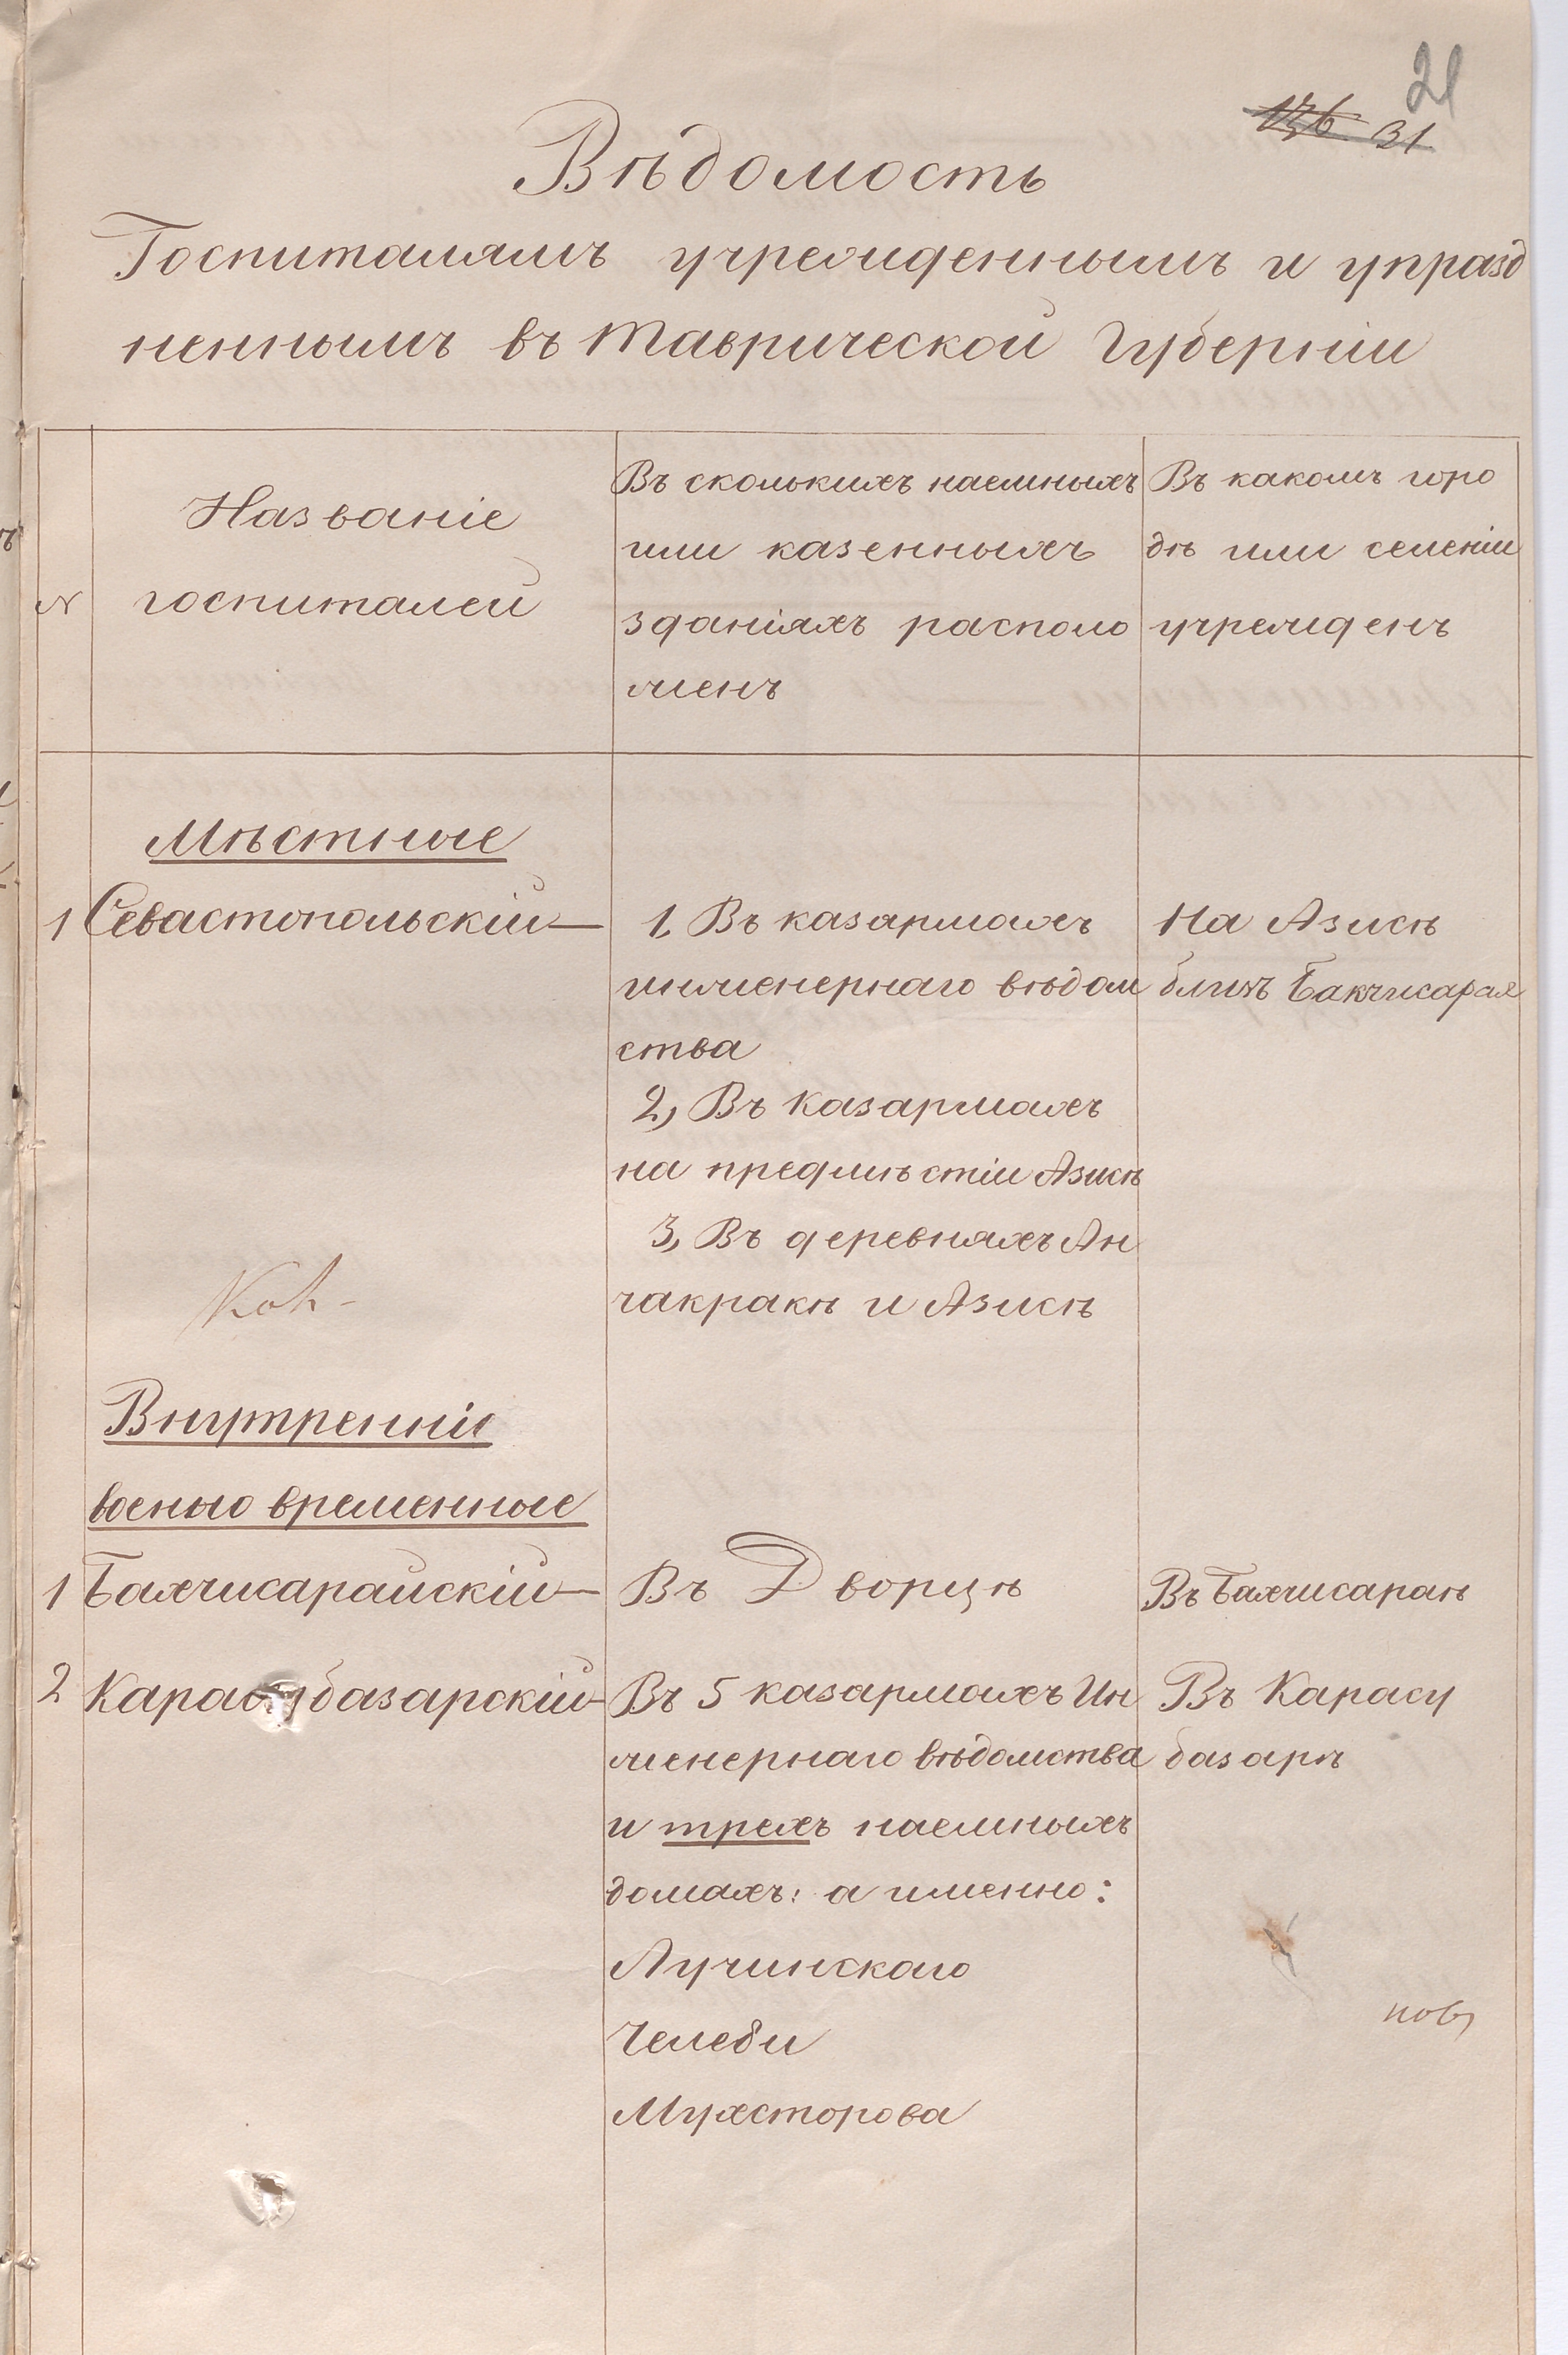 21
136 31
Вѣдомость
Госпиталямъ учрежденнымъ и упразд
неннымъ въ Таврической Губерніи
№
Названіе
госпиталей
Въ сколькихъ наемныхъ
или казенныхъ
зданіяхъ располо
женъ
Въ какомъ горо
дѣ или селеніи
учрежденъ
Мѣстные
1 Севастопольскій—
1, Въ казармахъ
инженернаго вѣдом
ства
2, Въ казармахъ
на предмѣстіи Азисѣ
3, Въ деревняхъ Ан
чакракѣ и Азисѣ
На Азисѣ
близъ Бакчисарая
Внутренніе
военно временные
1 Бахчисарайскій—
Въ Дворцѣ
Въ Бахчисараѣ
2 Карасубазарскій—
Въ 5 казармахъ Ин
женернаго вѣдомства
и трехъ наемныхъ
домахъ: а именно:
Лучинскаго
Челеби
Мухсторова
Въ Карасу
базарѣ